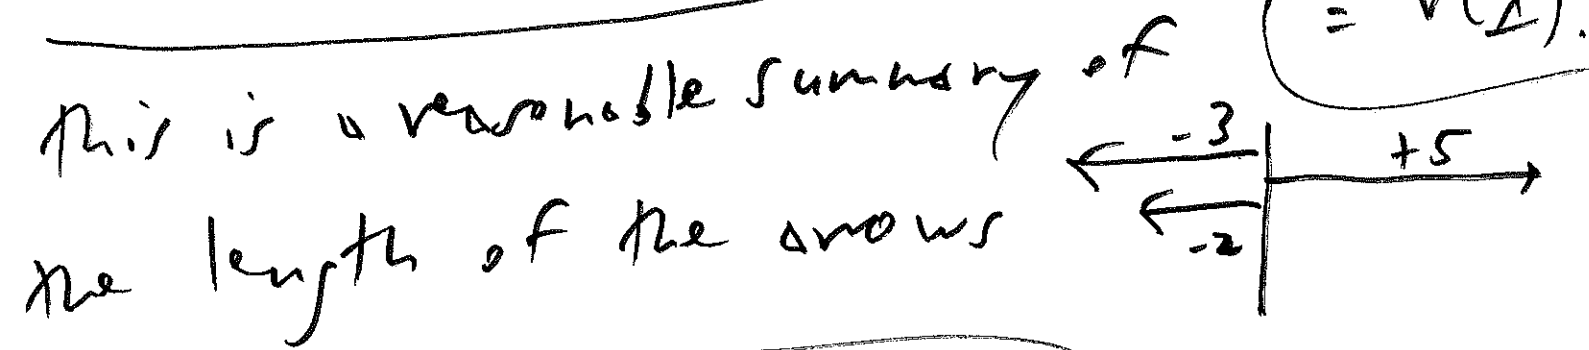 = V(Y).
this is a reasonable summary of
-3
+5
the length of the arrows
-2